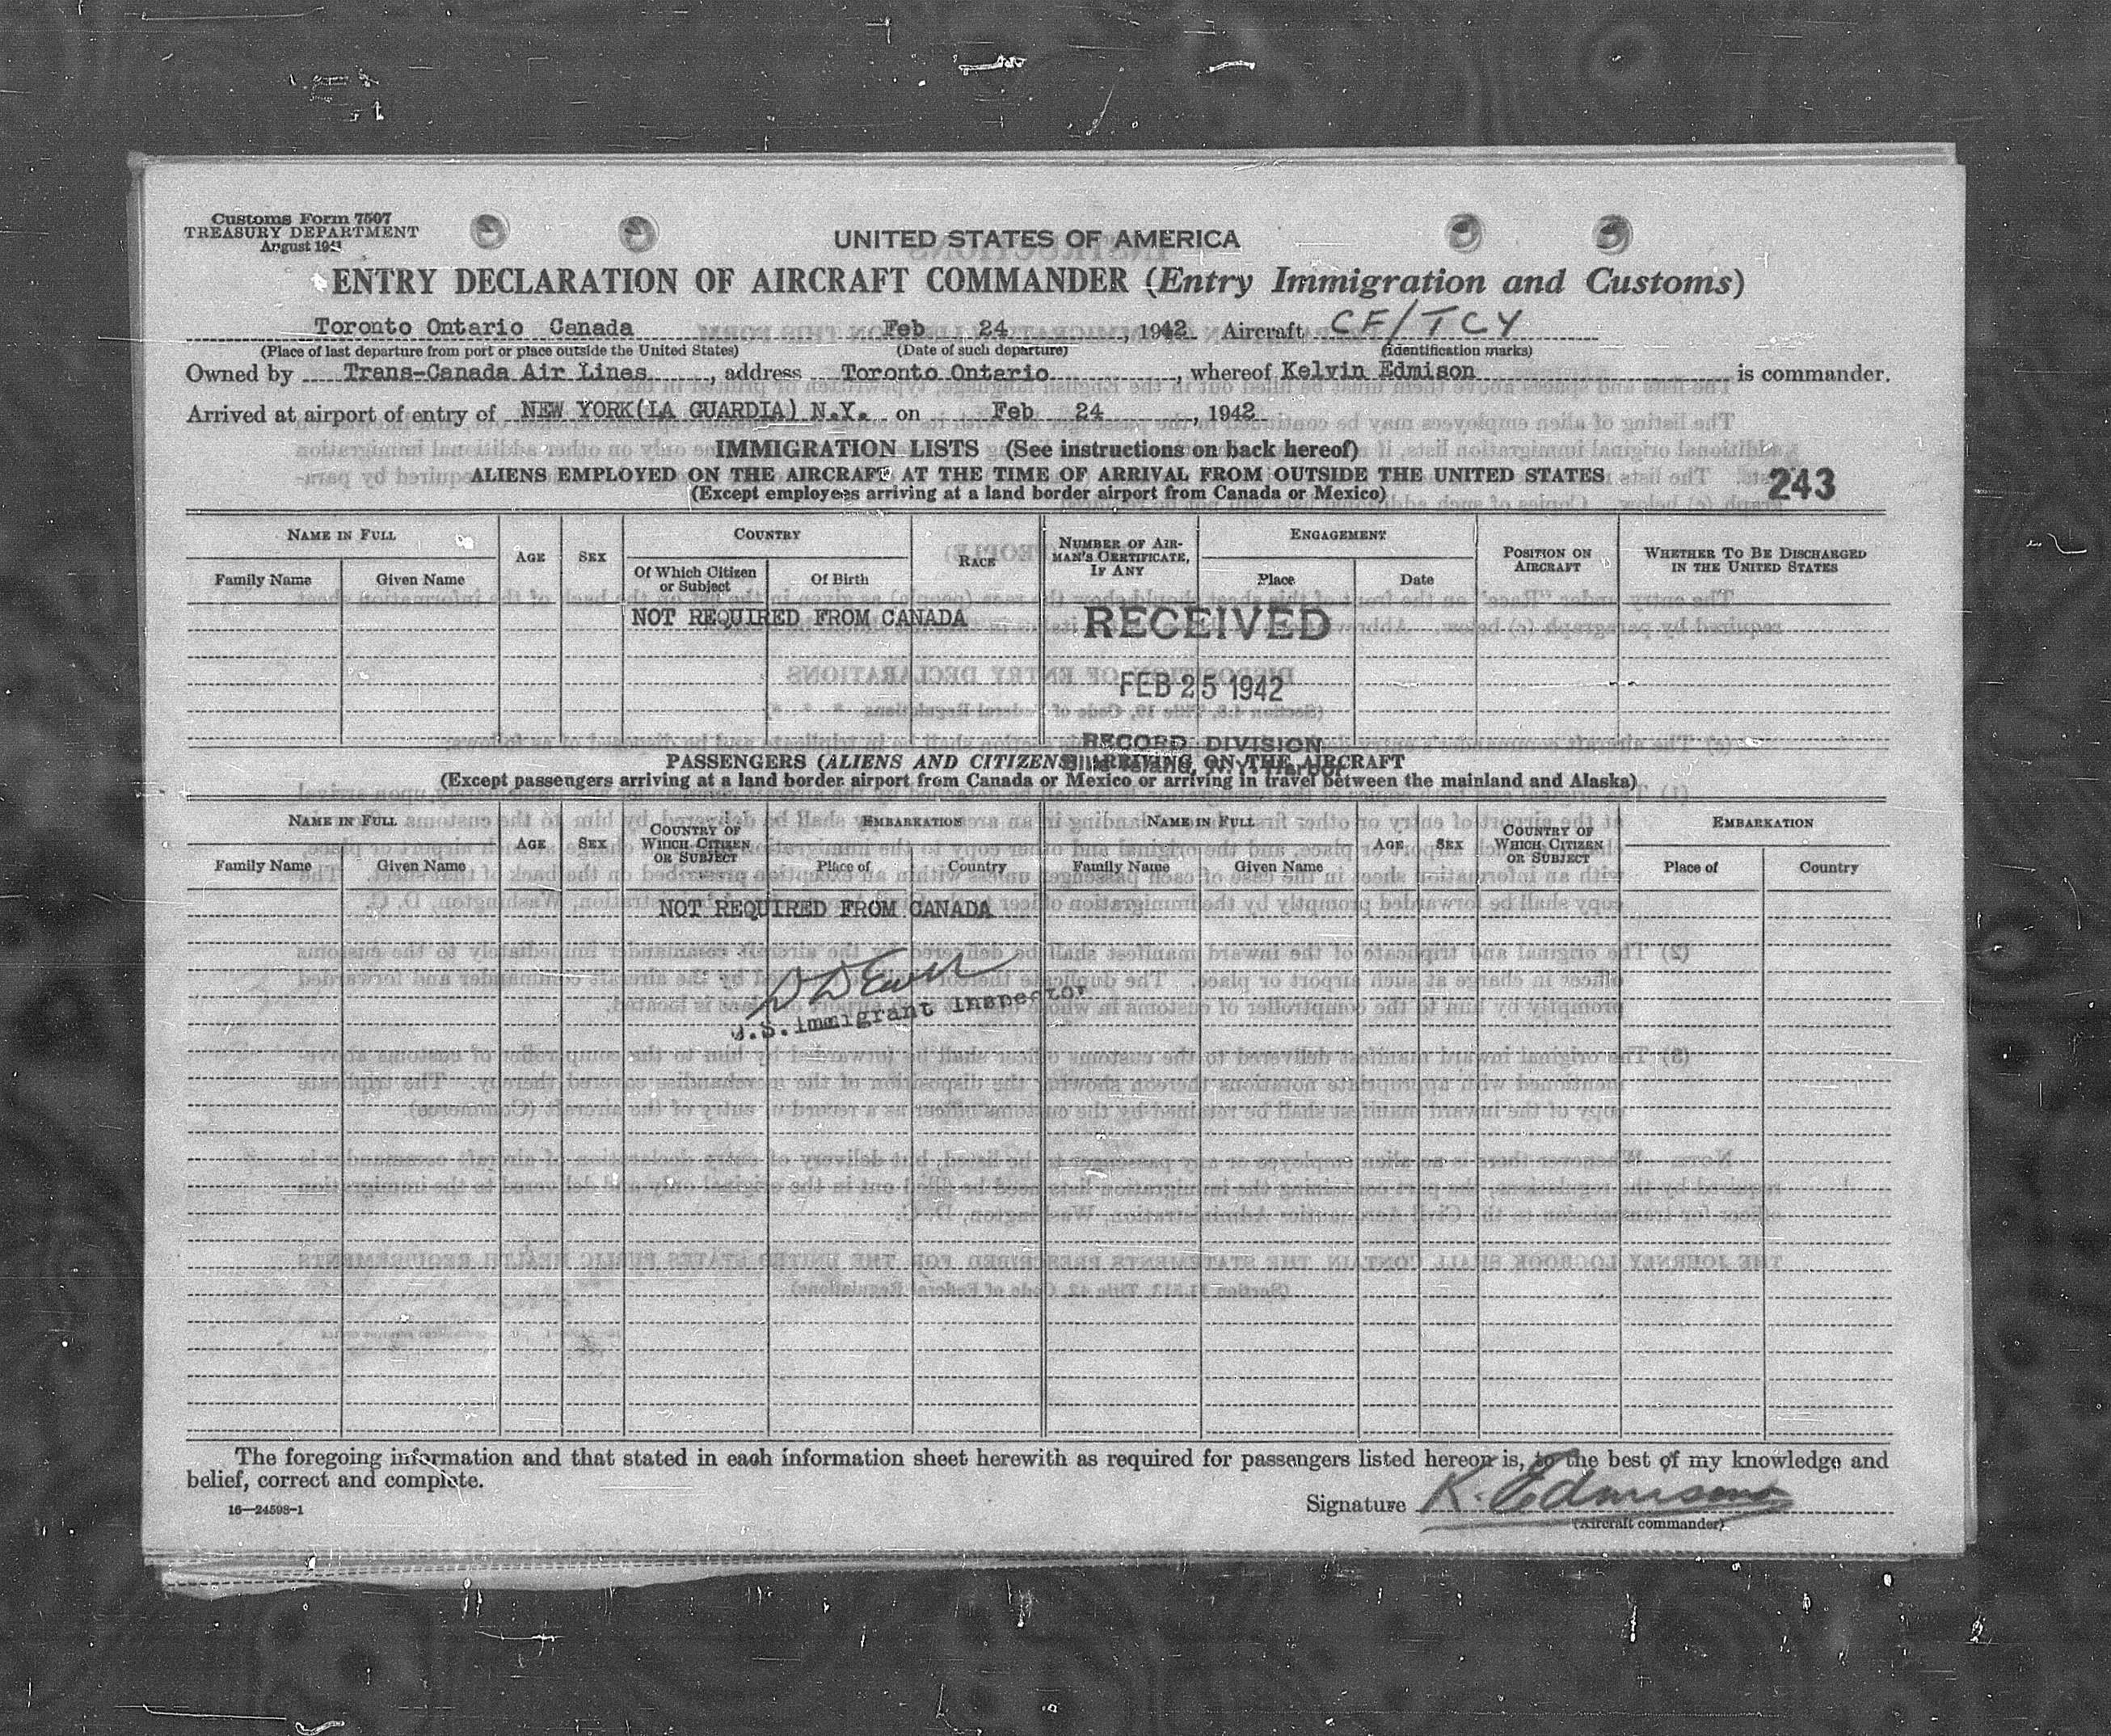 Customs Form 7507
TREASURY DEPARTMENT
August 1941
UNITED STATES OF AMERICA
ENTRY DECLARATION OF AIRCRAFT COMMANDER (Entry Immigration and Customs)
Toronto Ontario Canada Feb 24, 1942 Aircraft CF/TCY
(Place of last departure from port or place outside the United States) (Date of such departure) (Identification marks)
Owned by Trans-Canada Air Lines, address Toronto Ontario, whereof Kelvin Edmison is commander.
Arrived at airport of entry of NEW YORK(LA GUARDIA) N.Y. on Feb 24, 1942
IMMIGRATION LISTS (See instructions on back hereof)
ALIENS EMPLOYED ON THE AIRCRAFT AT THE TIME OF ARRIVAL FROM OUTSIDE THE UNITED STATES
243
(Except employees arriving at a land border airport from Canada or Mexico)
NAME IN FULL AGE SEX COUNTRY RACE NUMBER OF AIRMAN'S CERTIFICATE, IF ANY ENGAGEMENT POSITION ON AIRCRAFT WHETHER TO BE DISCHARGED IN THE UNITED STATES
Family Name Given Name Of Which Citizen or Subject Of Birth Place Date
NOT REQUIRED FROM CANADA
RECEIVED
FEB 25 1942
RECORD DIVISION
Ellis Island, N.Y. Harbor
PASSENGERS (ALIENS AND CITIZENS) ARRIVING ON THE AIRCRAFT
(Except passengers arriving at a land border airport from Canada or Mexico or arriving in travel between the mainland and Alaska)
NAME IN FULL AGE SEX COUNTRY OF WHICH CITIZEN OR SUBJECT EMBARKATION NAME IN FULL AGE SEX COUNTRY OF WHICH CITIZEN OR SUBJECT EMBARKATION
Family Name Given Name Place of Country Family Name Given Name Place of Country
NOT REQUIRED FROM CANADA
U.S. immigrant inspector
The foregoing information and that stated in each information sheet herewith as required for passengers listed hereon is, to the best of my knowledge and
belief, correct and complete.
16—24598-1
Signature K. Edmison
(Aircraft commander)